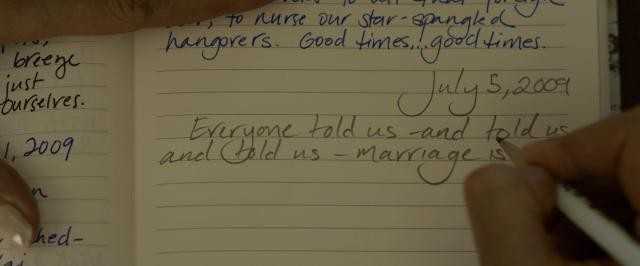 breeze
just
ourselves.
, 2009
hed-
to nurse our star-spangled
hangovers. Good times...good times.
July 5, 2009
Everyone told us -and told us
and told us - marriage is